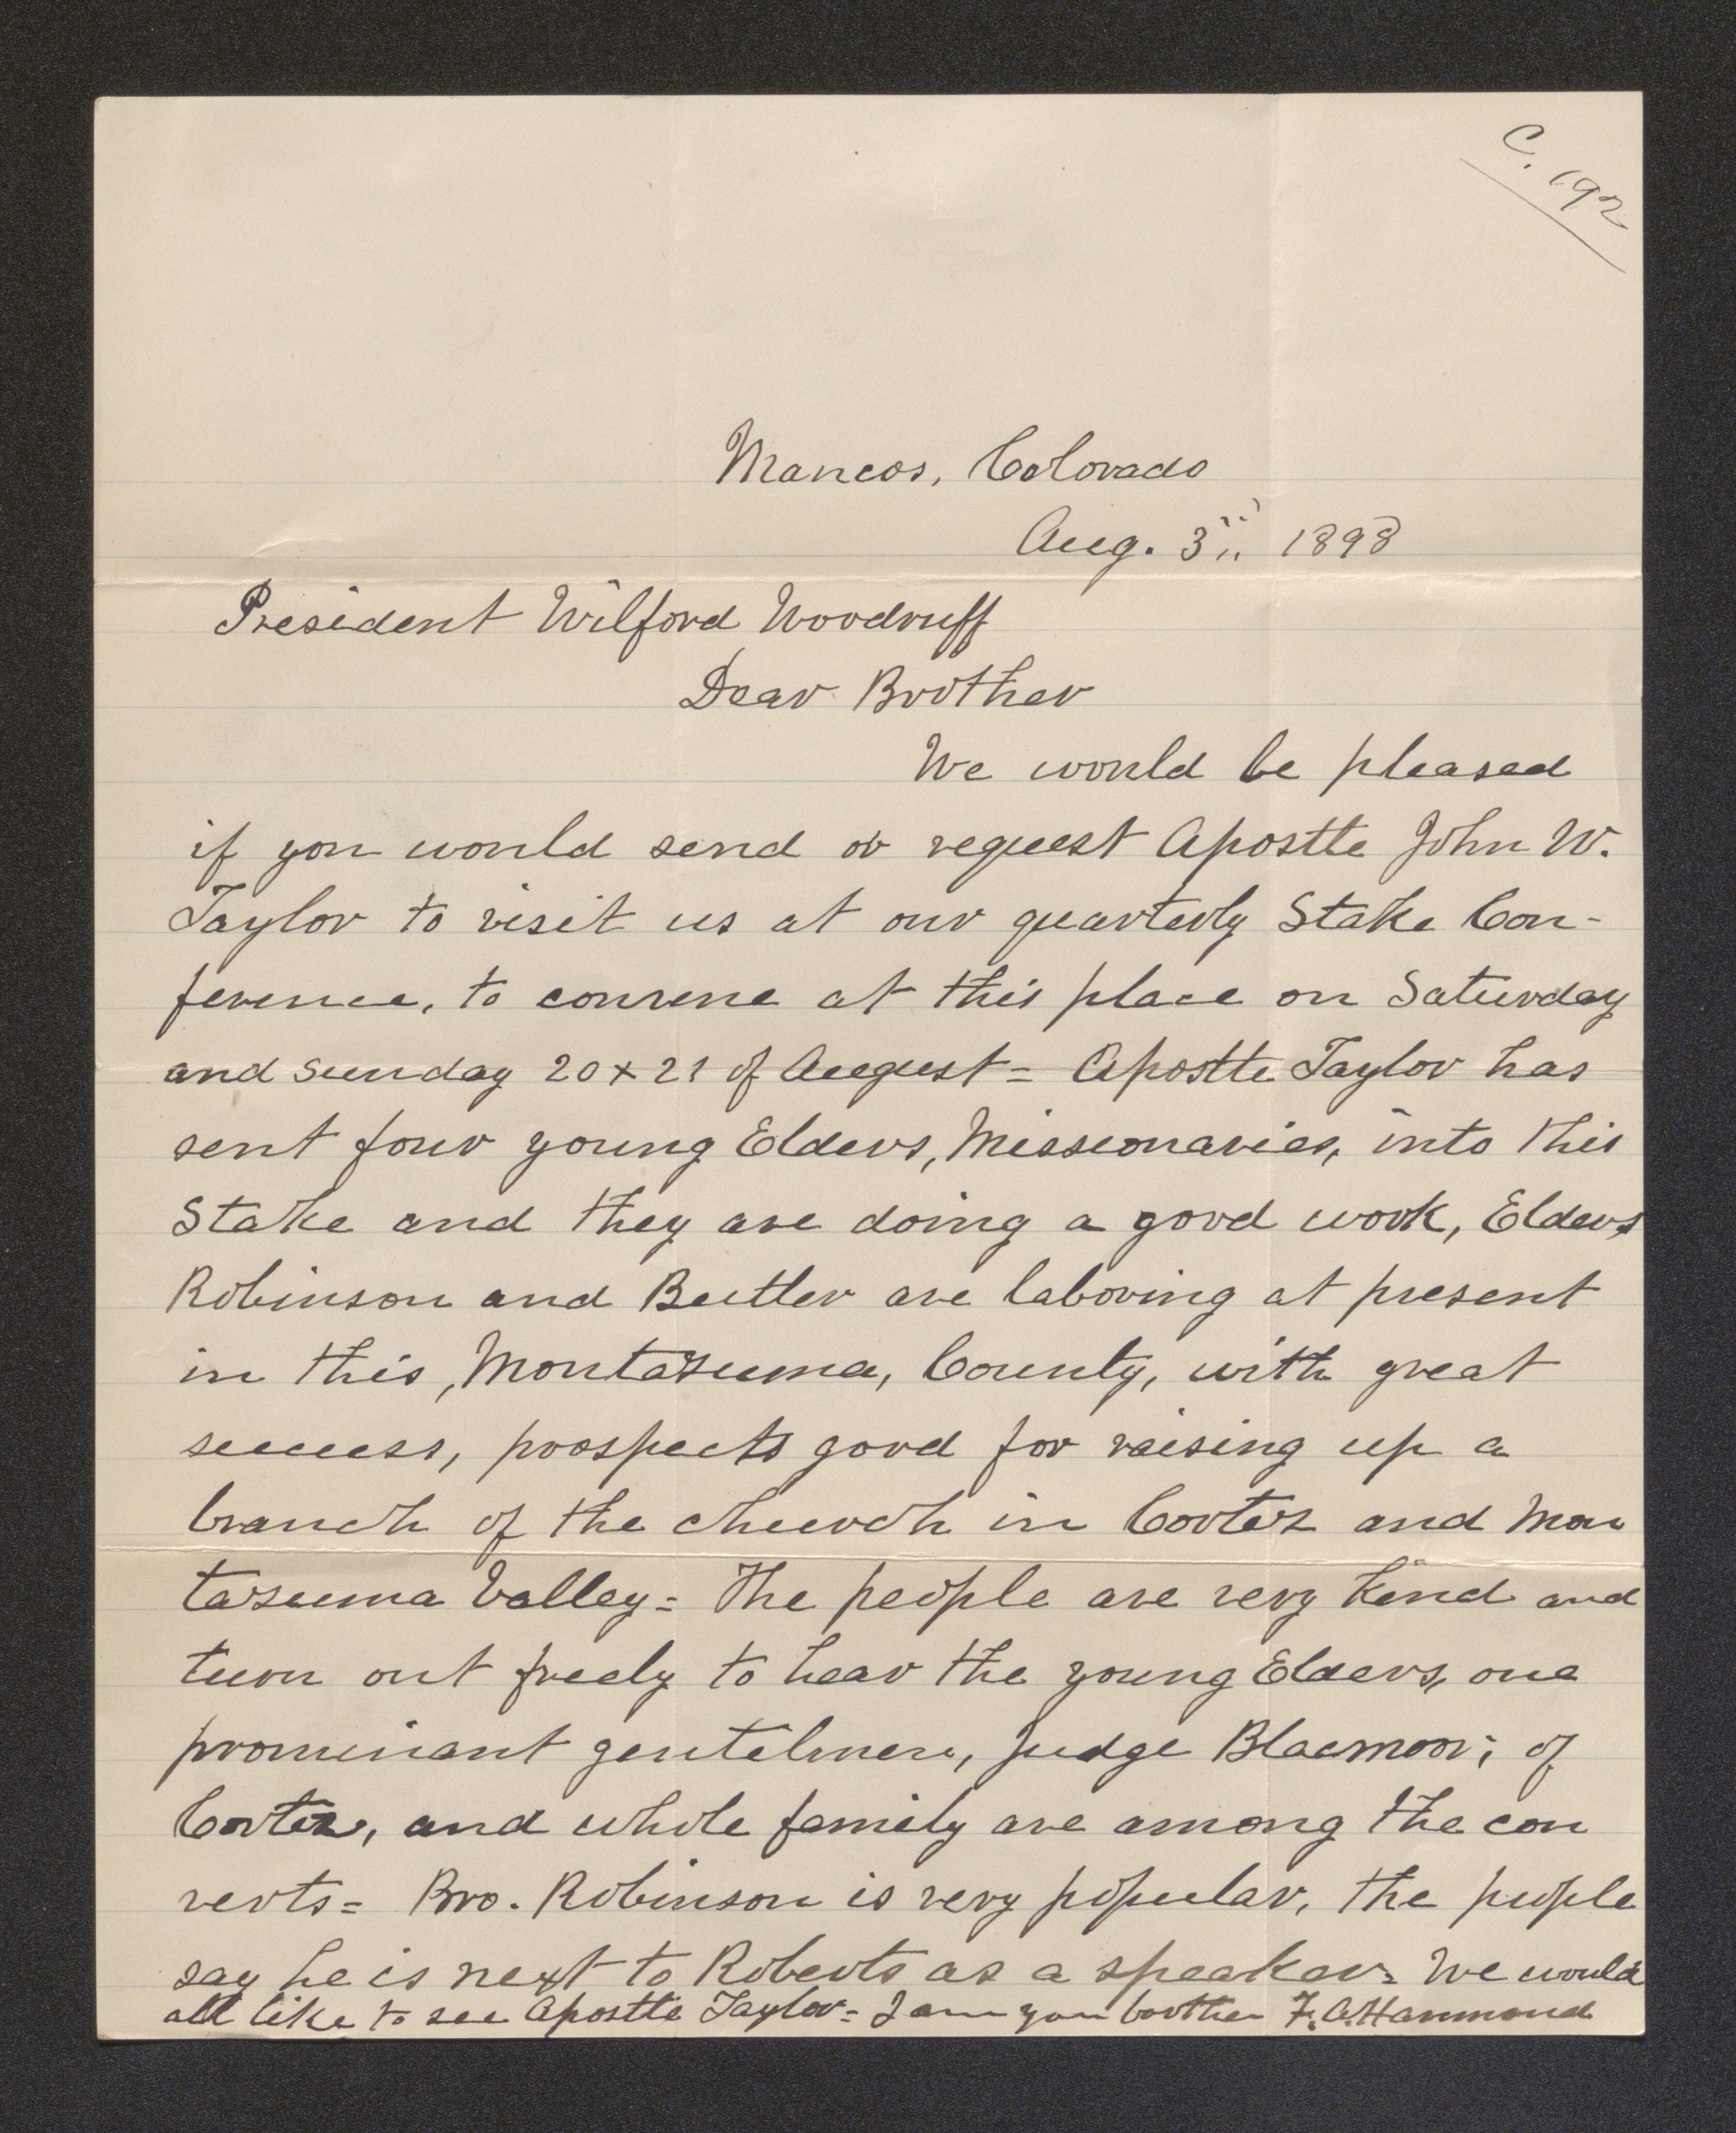 C. 192
Mancos, Colorado
Aug. 3" 1898
President Wilford Woodruff
Dear Brother
We would be pleased
if you would send or request Apostle John W.
Taylor to visit us at our quarterly Stake Con-
ference, to convene at this place on Saturday
and Sunday 20 + 21 of August = Apostle Taylor has
sent four young Elders, Missionaries, into this
Stake and they are doing a good work, Elders
Robinson and Butler are laboring at present
in this, Montazuma, County, with great
success, prospects good for raising up a
branch of the church in Cortez and Mon
tazuma Valley = The people are very kind and
turn out freely to hear the young Elders, one
prominant gentelmen, Judge Blacmor; of
Cortez, and whole family are among the con
verts = Bro. Robinson is very popular, the people
say he is next to Roberts as a speaker = We would
all like to see Apostle Taylor = I am your brother F. A. Hammond